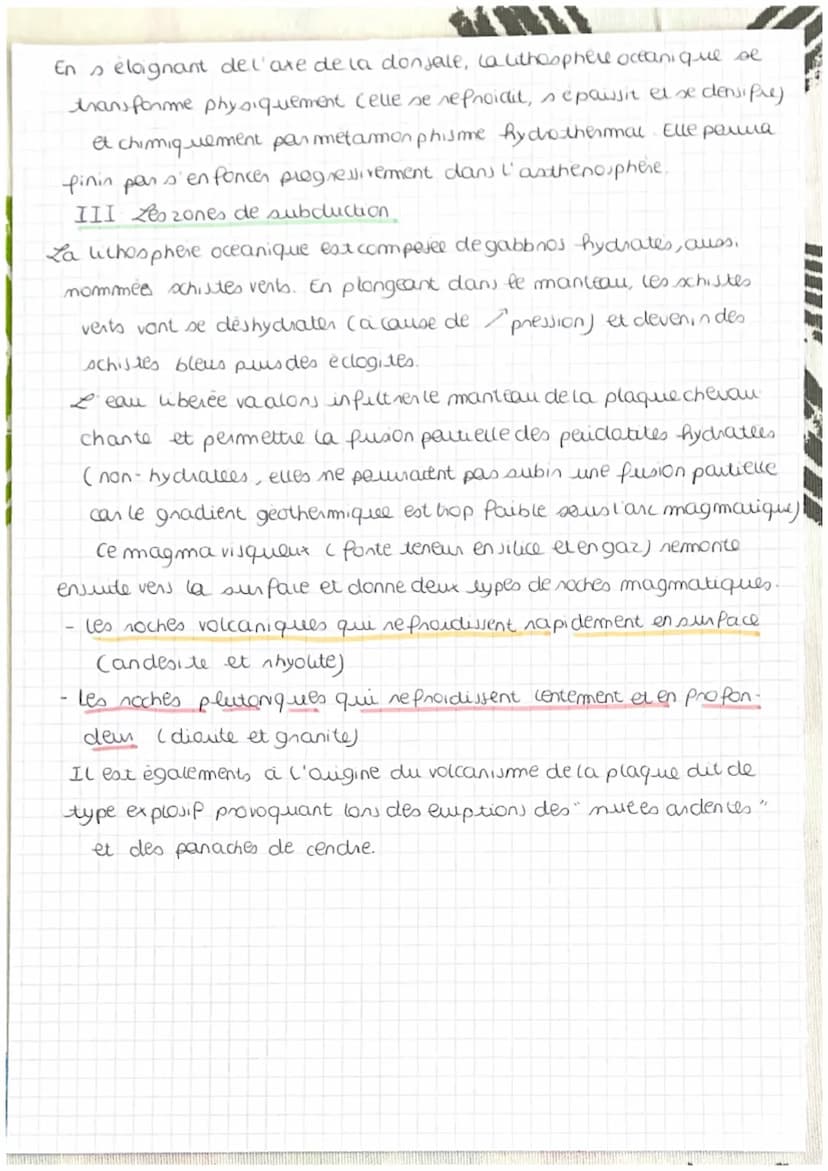 En s'éloignant de l'axe de la dorsale, la lithosphère océanique se
transforme physiquement (elle se refroidit, s'épaissit et se densifie)
et chimiquement par métamorphisme hydrothermal. Elle pourra
finir par s'enfoncer progressivement dans l'asthénosphère.
III Les zones de subduction
La lithosphère océanique est composée de gabbros hydratés, aussi
nommées schistes verts. En plongeant dans le manteau, les schistes
verts vont se déshydrater (à cause de ↗ pression) et devenir des
schistes bleus puis des éclogites.
L'eau libérée va alors infiltrer le manteau de la plaque chevau
chante et permettre la fusion partielle des péridotites hydratées
(non-hydratées, elles ne pourraient pas subir une fusion partielle
car le gradient géothermique est trop faible sous l'arc magmatique)
Ce magma visqueux (forte teneur en silice et en gaz) remonte
ensuite vers la surface et donne deux types de roches magmatiques.
- Les roches volcaniques qui refroidissent rapidement en surface
(andésite et rhyolite)
- Les roches plutoniques qui refroidissent lentement et en profon-
deur (diorite et granite)
Il est également à l'origine du volcanisme de la plaque dit de
type explosif provoquant lors des éruptions des "nuées ardentes"
et des panaches de cendre.